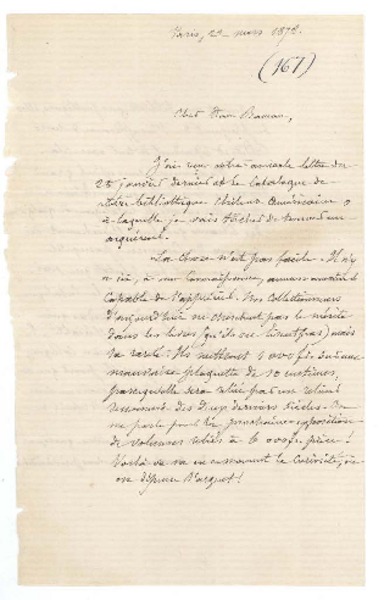 Paris, 29 mars 1872.
(167)
Cher Don Barros,
J'ai reçu votre lettre du
25 janvier dernier et le Catalogue de
bibliothèque Américaine
à laquelle je vais tâcher de trouver un
acquéreur.
La chose n'est pas facile. Il n'y
a ici, à ma connaissance, aucun amateur
capable de l'apprécier. Nos collectionneurs
d'aujourd'hui ne cherchent pas le mérite
dans les livres (qu'ils ne lisent pas) mais
la rareté. Ils mettront 1000 fr. sur une
mauvaise plaquette de 10 centimes,
parcequ'elle sera reliée par un relieur
renommé des deux derniers siècles. On
me parle pour la prochaine exposition
de volumes reliés à 6 000 fr. pièce!
Voilà ce en ce moment la curiosité,
!